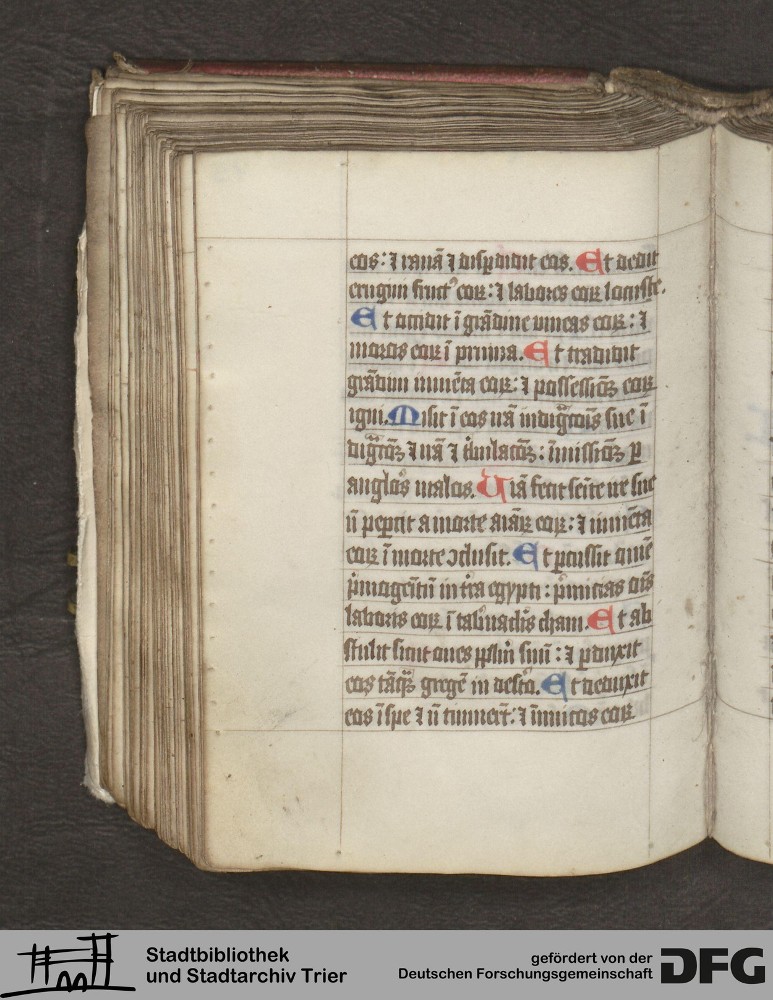 eos: ⁊ ranā ⁊ disꝑdidit eos. Et dedit
erugini fruct᷒ eoꝝ: ⁊ labores eoꝝ locuste.
Et occidit ī grādine vineas eoꝝ: ⁊
moros eoꝝ ī pruina. Et tradidit
grādini iumēta eoꝝ: ⁊ possessiōꝫ eoꝝ
igni. Misit ī eos irā indigͣtiōis sue ī
digͣtōꝫ ⁊ irā ⁊ t̾bulacōꝫ: īmissiōꝫ ꝑ
anglōs malos. Uiā fecit semite ire sue
nō peꝑcit a morte aīaꝝ eoꝝ: ⁊ iumēta
eoꝝ ī morte ↄclusit. Et ꝑcussit omē
p̄mogēitū in t̄ra egypti: p̄micias oīs
laboris eoꝝ ī tab̄naclīs cham. Et ab
stulit sicut oues pplm̄ suū: ⁊ ꝑduxit
eos tāꝗꝫ gregē in des̄to. Et deduxit
eos ī spe ⁊ nō timuer̄t: ⁊ īimicos eoꝝ
Stadtbibliothek
und Stadtarchiv Trier
gefördert von der
Deutschen Forschungsgemeinschaft
DFG